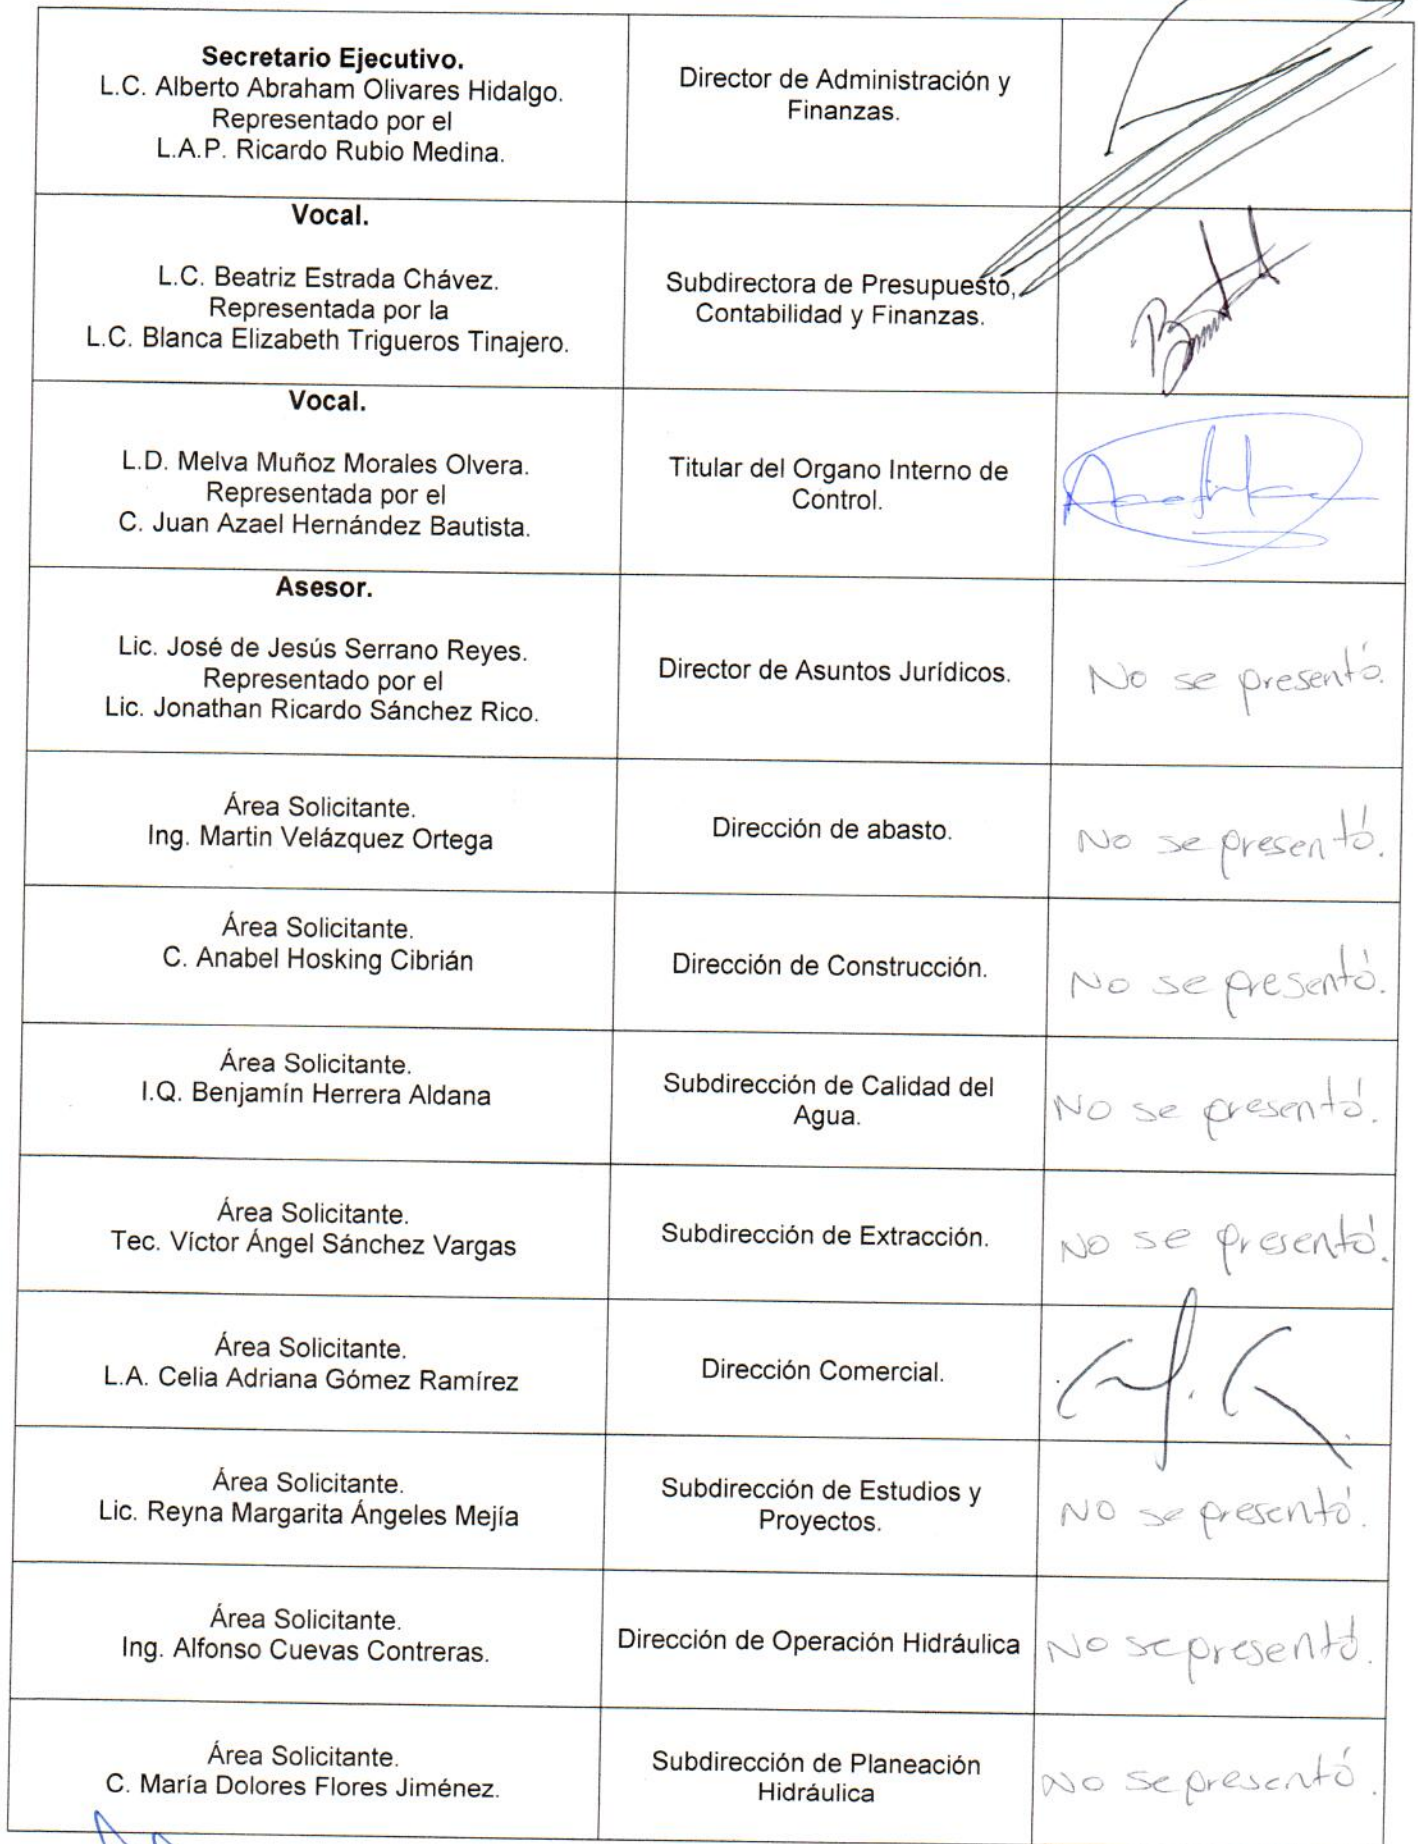 Secretario Ejecutivo.
L.C. Alberto Abraham Olivares Hidalgo.
Representado por el
L.A.P. Ricardo Rubio Medina.
Director de Administración y
Finanzas.
Vocal.
L.C. Beatriz Estrada Chávez.
Representada por la
L.C. Blanca Elizabeth Trigueros Tinajero.
Subdirectora de Presupuesto,
Contabilidad y Finanzas.
Vocal.
L.D. Melva Muñoz Morales Olvera.
Representada por el
C. Juan Azael Hernández Bautista.
Titular del Organo Interno de
Control.
Asesor.
Lic. José de Jesús Serrano Reyes.
Representado por el
Lic. Jonathan Ricardo Sánchez Rico.
Director de Asuntos Jurídicos.
No se presentó.
Área Solicitante.
Ing. Martin Velázquez Ortega
Dirección de abasto.
No se presentó.
Área Solicitante.
C. Anabel Hosking Cibrián
Dirección de Construcción.
No se presentó.
Área Solicitante.
I.Q. Benjamín Herrera Aldana
Subdirección de Calidad del
Agua.
No se presentó.
Área Solicitante.
Tec. Víctor Ángel Sánchez Vargas
Subdirección de Extracción.
No se presentó.
Área Solicitante.
L.A. Celia Adriana Gómez Ramírez
Dirección Comercial.
Área Solicitante.
Lic. Reyna Margarita Ángeles Mejía
Subdirección de Estudios y
Proyectos.
No se presentó.
Área Solicitante.
Ing. Alfonso Cuevas Contreras.
Dirección de Operación Hidráulica
No se presentó.
Área Solicitante.
C. María Dolores Flores Jiménez.
Subdirección de Planeación
Hidráulica
No se presentó.